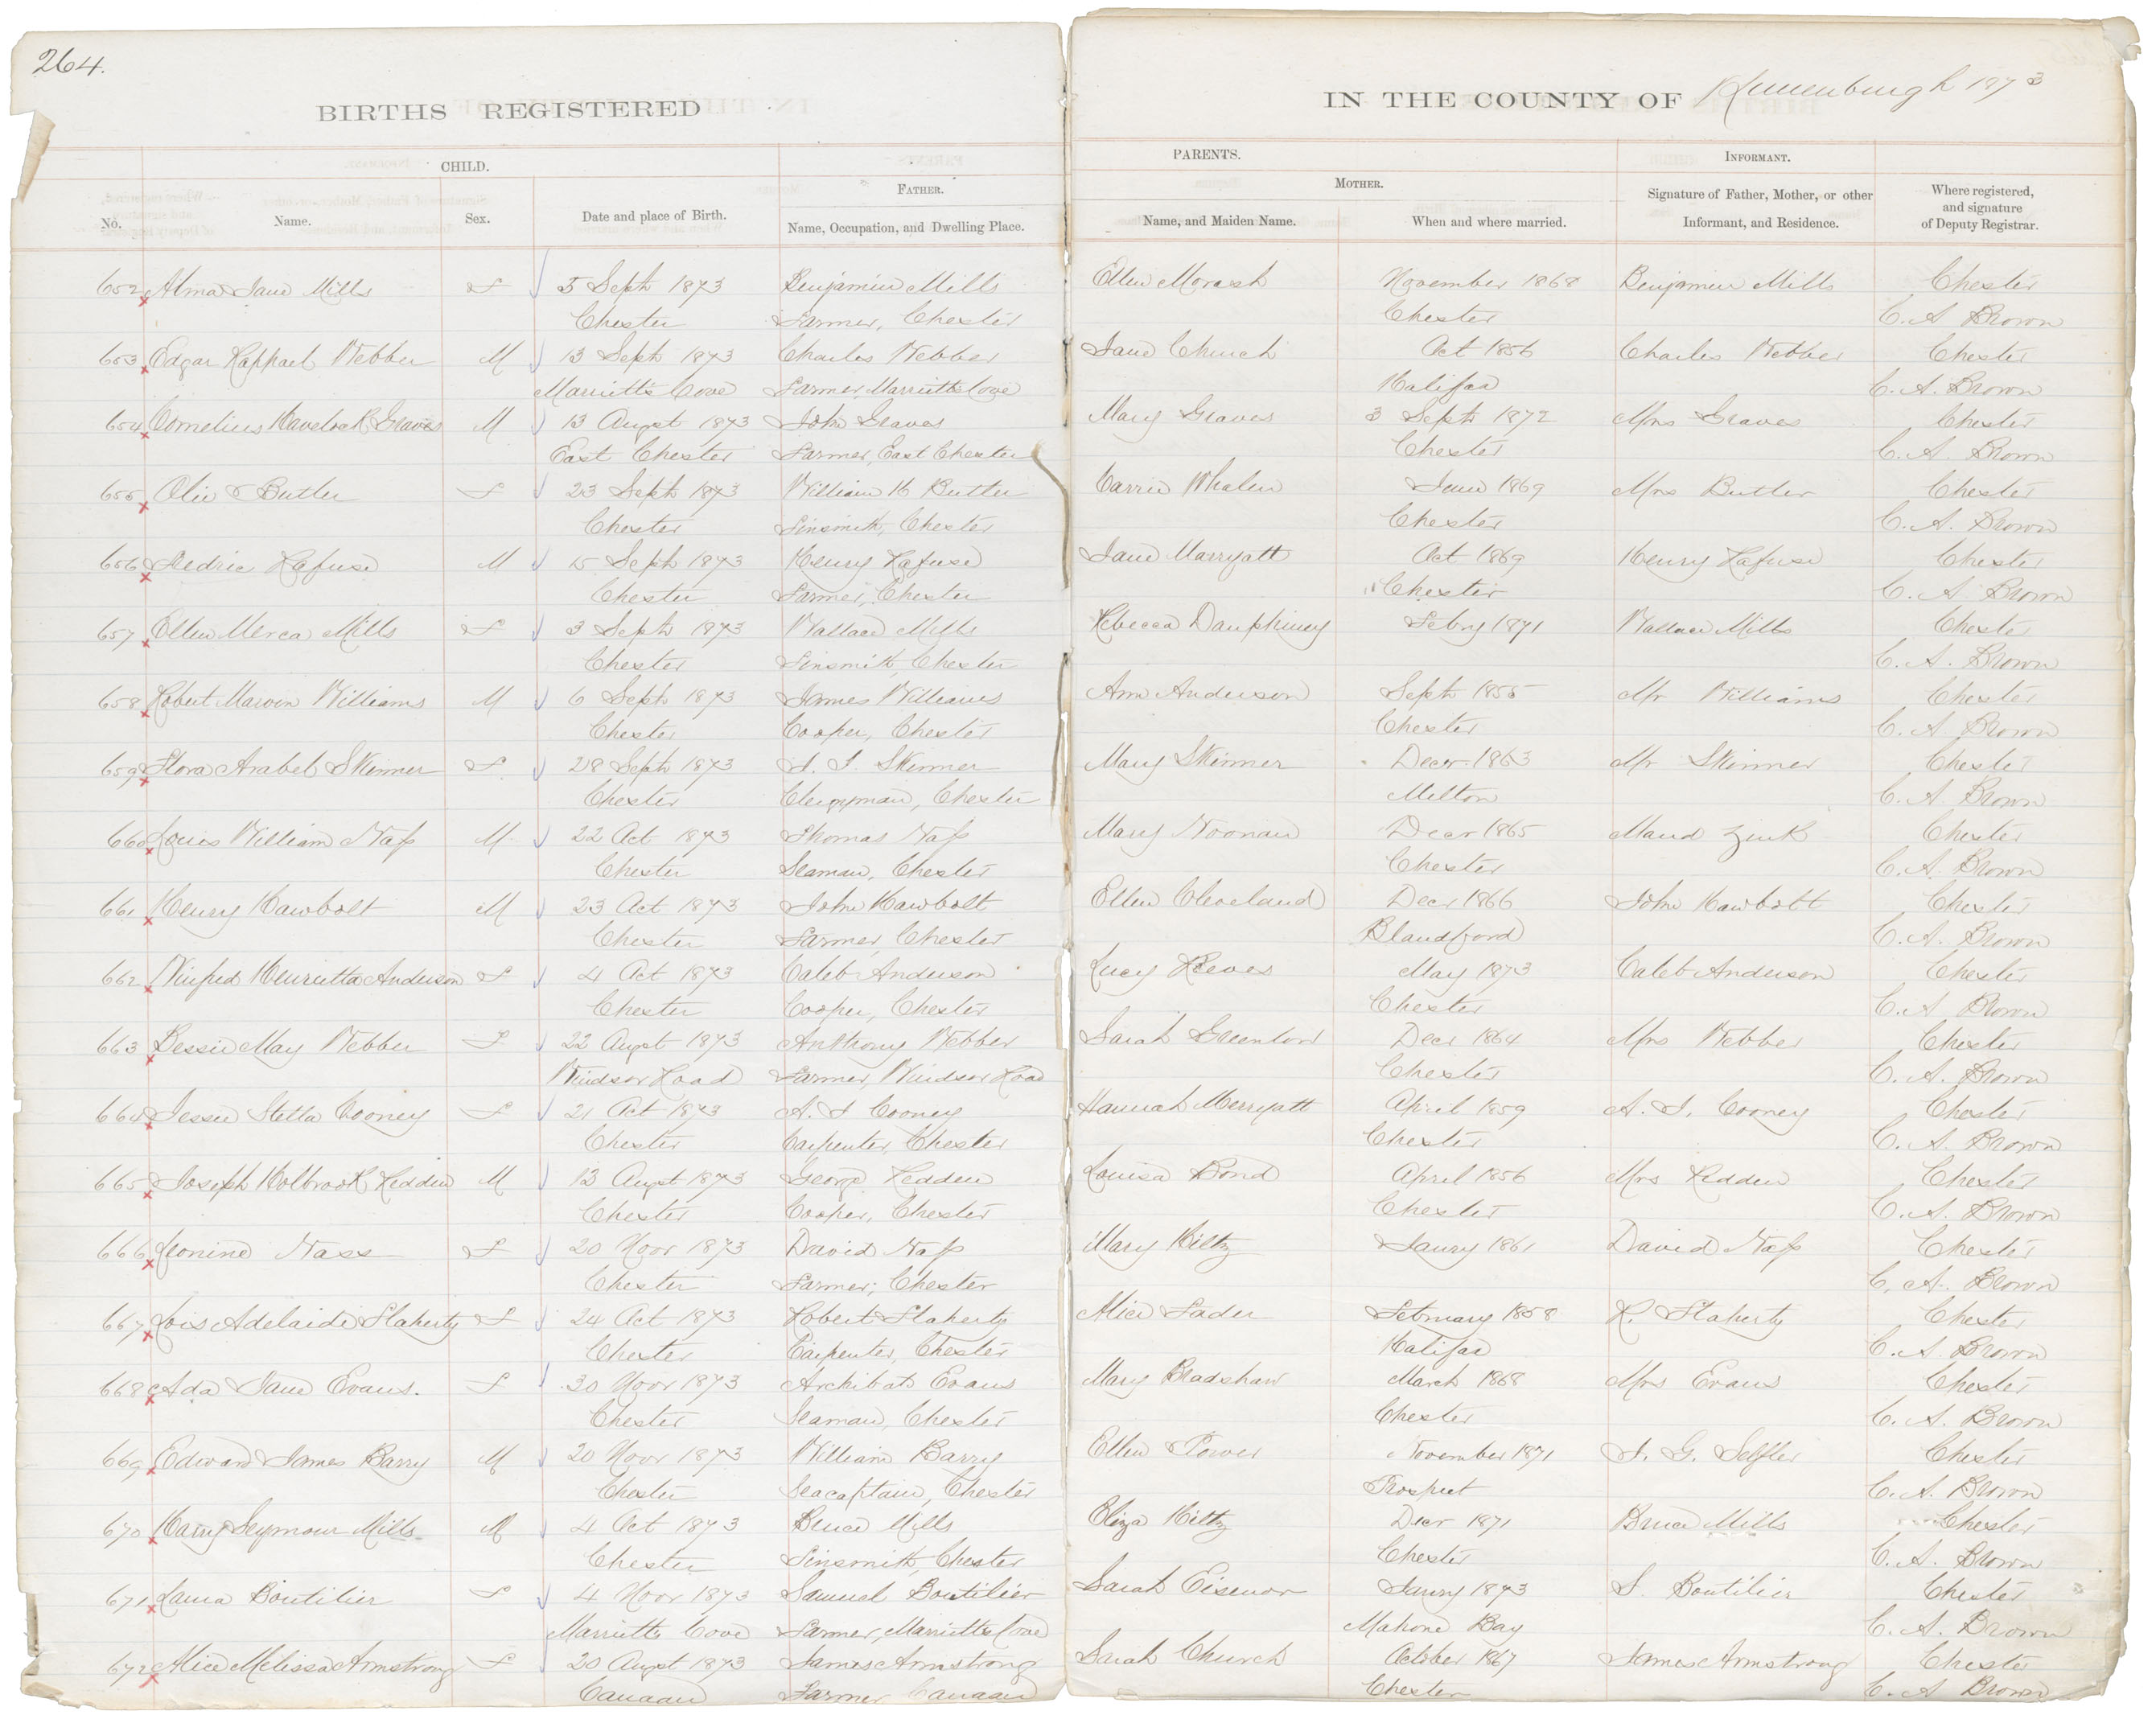 264.
BIRTHS REGISTERED
IN THE COUNTY OF Lunenburgh 1873
CHILD.
PARENTS.
INFORMANT.
FATHER.
MOTHER.
No. Name. Sex. Date and place of Birth. Name, Occupation, and Dwelling Place. Name, and Maiden Name. When and where married. Signature of Father, Mother, or other Informant, and Residence. Where registered, and signature of Deputy Registrar.
652 Alma Jane Mills F 5 Sept 1873 Benjamin Mills Ellen Morash November 1868 Benjamin Mills Chester
Chester Farmer, Chester Chester C. A Brown
653 Edgar Raphael Webber M 13 Sept 1873 Charles Webber Jane Church Oct 1856 Charles Webber Chester
Marriotts Cove Farmer, Marriotts Cove Halifax C. A. Brown
654 Cornelius Havelock Graves M 13 Augst 1873 John Graves Mary Graves 3 Sept 1872 Mrs Graves Chester
East Chester Farmer, East Chester Chester C. A. Brown
655 Olie Butler F 23 Sept 1873 William H Butler Carrie Whalen June 1869 Mrs Butler Chester
Chester Tinsmith, Chester Chester C. A. Brown
656 Stedric Rafuse M 15 Sept 1873 Henry Rafuse Jane Marryatt Oct 1869 Henry Rafuse Chester
Chester Farmer, Chester Chester C. A Brown
657 Ellen Merca Mills F 3 Sept 1873 Wallace Mills Rebecca Dauphiney Febry 1871 Wallace Mills Chester
Chester Tinsmith, Chester C. A. Brown
658 Robert Marvin Williams M 6 Sept 1873 James Williams Ann Anderson Sept 1855 Mr Williams Chester
Chester Cooper, Chester Chester C. A Brown
659 Flora Arabel Skinner F 28 Sept 1873 I. J. Skinner Mary Skinner Decr 1863 Mr Skinner Chester
Chester Clergyman, Chester Milton C. A. Brown
660 Louis William Nass M 22 Oct 1873 Thomas Nass Mary Noonan Decr 1865 Maud Zink Chester
Chester Seaman, Chester Chester C. A. Brown
661 Henry Hawbolt M 23 Oct 1873 John Hawbolt Ellen Cleveland Decr 1866 John Hawbolt Chester
Chester Farmer, Chester Blandford C. A. Brown
662 Winfred Henrietta Anderson F 4 Oct 1873 Caleb Anderson Lucy Reeves May 1873 Caleb Anderson Chester
Chester Cooper, Chester Chester C. A Brown
663 Bessie May Webber F 22 Augst 1873 Anthony Webber Sarah Greenlow Decr 1864 Mrs Webber Chester
Windsor Road Farmer, Windsor Road Chester C. A. Brown
664 Jessie Stella Cooney F 21 Oct 1873 A. J Cooney Hannah Merryatt April 1859 A. J. Cooney Chester
Chester Carpenter, Chester Chester C. A. Brown
665 Joseph Holbrook Redden M 13 Augst 1873 George Redden Louisa Bond April 1856 Mrs Redden Chester
Chester Cooper, Chester Chester C. A. Brown
666 Leonine Nass F 20 Novr 1873 David Nass Mary Hiltz Janry 1861 David Nass Chester
Chester Farmer, Chester C. A. Brown
667 Lois Adelaide Flaherty F 24 Oct 1873 Robert Flaherty Alice Fader February 1858 R. Flaherty Chester
Chester Carpenter, Chester Halifax C. A. Brown
668 Ada Jane Evans. F 30 Novr 1873 Archibald Evans Mary Bradshaw March 1868 Mrs Evans Chester
Chester Seaman, Chester Chester C. A. Brown
669 Edward James Barry M 20 Novr 1873 William Barry Ellen Power November 1871 J. G. Chester
Chester Seacaptain, Chester Prospect C. A. Brown
670 Harry Seymour Mills M 4 Oct 1873 Bruce Mills Eliza Hiltz Decr 1871 Bruce Mills Chester
Chester Tinsmith, Chester Chester C. A. Brown
671 Laura Boutilier F 4 Novr 1873 Samuel Boutilier Sarah Eisenor Janry 1873 S. Boutilier Chester
Marriotts Cove Farmer, Marriotts Cove Mahone Bay C. A. Brown
672 Alice Melissa Armstrong F 20 Augst 1873 James Armstrong Sarah Church October 1867 James Armstrong Chester
Canaan Farmer, Canaan Chester C. A Brown